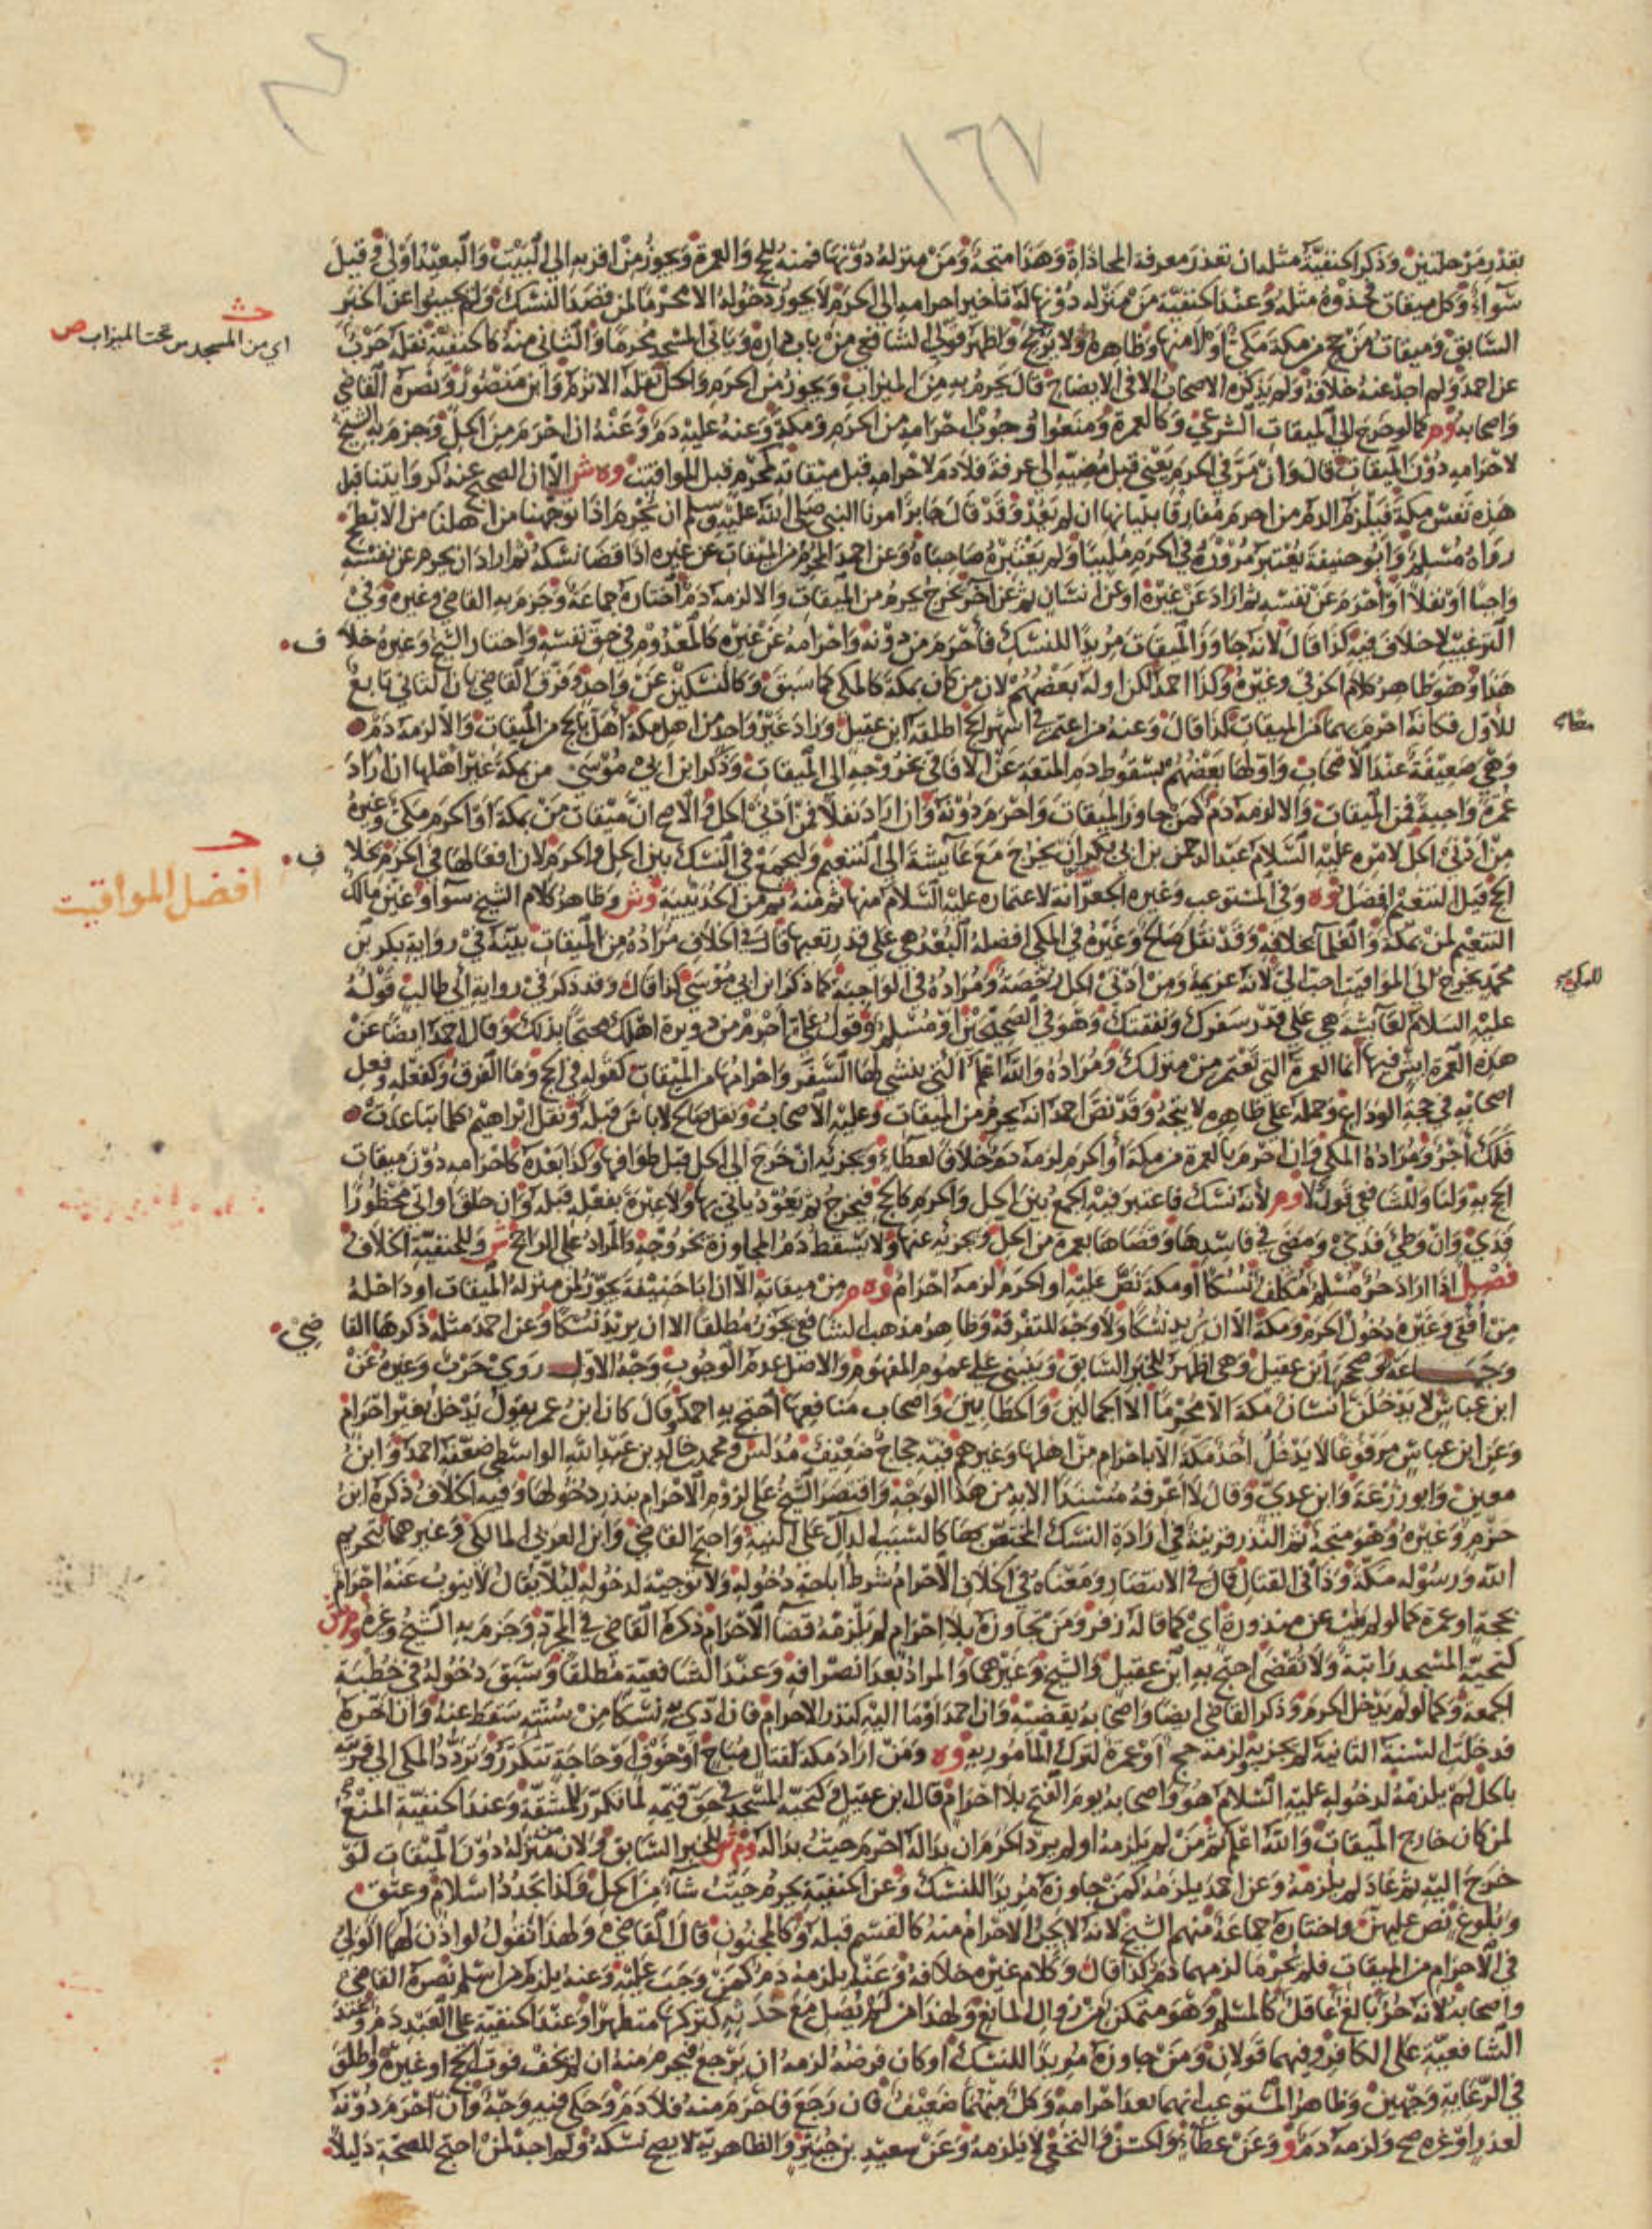 ١٦٧
بقدر مرحلتين وذكر الحنفية مثله ان تعذر معرفة المحاذاة وهذا متجه ومن منزله دونها فمنه للحج والعمرة ويجوز من اقربه الى البيت والبعيد اولى وقيل
سواء وكل ميقات فحذوه مثله وعند الحنفية من منزله دونها له تاخير احرامه الى الحرم لا يجوز دخوله الا محرما لمن قصد النسك ولم يجيبوا عن الخبر
السابق وميقات من حج من مكة مكي او لا منها وظاهره ولا ترجيح واظهر قولي الشافعي من باب داره ويأتي المسجد محرما والثاني منه كالحنفية نقله حرب
عن احمد ولم اجد عنه خلافه ولم يذكره الاصحاب الا في الايضاح قال يحرم به من الميزاب ويجوز من الحرم والحل نقله الاثرم وابن منصور ونصره القاضي
واصحابه وم كما لو خرج الى الميقات الشرعي وكالعمرة ومنعوا وجوب احرامه من الحرم ومكة وعنه عليه دم وعنه ان احرم من الحل وجزم به الشيخ
لاحرامه دون الميقات قال وان مر في الحرم يعني قبل مضيه الى عرفة فلا دم لاحرامه قبل ميقاته كمحرم قبل المواقيت وه ش الا ان الصحيح عنه
هذه نفس مكة فيلزم الدم من احرم مفارقا بنيانها ان لم يعد وقد قال جابر امرنا النبي صلى الله عليه وسلم ان نحرم اذا توجهنا من اهلنا من الابطح
رواه مسلم وابو حنيفة يعتبر مروره في الحرم ملبيا ولم يعتبره صاحباه وعن احمد المحرم من الميقات عن غيره اذا قضا نسكه ثم اراد ان يحرم عن نفسه
واجبا او نفلا او احرم عن نفسه ثم اراد عن غيره او عن انسان ثم عن آخر يخرج يحرم من الميقات والا لزمه دم اختاره جماعة وجزم به القاضي وغيره وفي
الترغيب لا خلاف فيه كذا قال لانه جاوز الميقات مريدا للنسك فأحرم من دونه واحرامه عن غيره كالمعدوم في حق نفسه واختار الشيخ وغيره خلا ف
هذا وهو ظاهر كلام الخرقي وغيره وكذا احمد لكن اوله بعضهم لان من كان بمكة كالمكي كما سبق وكالنسكين عن واحد وفرق القاضي بان الثاني تابع
للاول فكانه احرم بهما من الميقات كذا قال وعنه من اعتمر في اشهر الحج اطلقه ابن عقيل وزاد غير واحد من اهل مكة اهل بالحج من الميقات والا لزمه دم
وهي ضعيفة عند الاصحاب واولها بعضهم بسقوط دم المتعة عن الافاقي بخروجه الى الميقات وذكر ابن ابي موسى من بمكة غير اهلها ان اراد
عمرة واجبة فمن الميقات والا لزمه دم كمن جاوز الميقات واحرم دونه وان اراد نفلا فمن ادنى الحل والاصح ان ميقات من بمكة او الحرم مكي وغيره
من ادنى الحل لامره عليه السلام عبد الرحمن بن ابي بكر ان يخرج مع عايشة الى التنعيم وليجمع في النسك بين الحل والحرم لان افعالها في الحرم بخلا ف
الحج قيل التنعيم افضل وه وفي المستوعب وغيره الجعرانة لاعتماره عليه السلام منها ثم منه ثم من الحديبية وش وظاهر كلام الشيخ سواء وعن مالك
التنعيم لمن بمكة والعلما بخلافه وقد نقل صالح وغيره في المكي افضله البعد هي على قدر تعبها قال في الخلاف مراده من الميقات بينه في رواية بكر بن
محمد يخرج الى المواقيت احب الي لانه عزيمة ومن ادنى الحل رخصة ومراده في الواجبة كما ذكر ابن ابي موسى كذا قال وقد ذكر في رواية ابي طالب قوله
عليه السلام لعايشة هي على قدر سفرك ونفقتك وهو في الصحيحين او مسلم وقول علي احرم من دويرة اهلك محتجا بذلك وقال احمد ايضا عن
هذه العمرة ايش فيها انما العمرة التي تعتمر من منزلك ومراده والله اعلم التي ينشي لها السفر واحرامها من الميقات كقوله في الحج وما الفرق وكفعله وفعل
اصحابه في حجة الوداع وحمله على ظاهره لا يتجه وقد نص احمد انه يحرم من الميقات وعليه الاصحاب ونقل صالح لا باس قبله ونقل ابراهيم كلما تباعدت
فلك اجر ومراده المكي وان احرم بالعمرة من مكة او الحرم لزمه دم خلافا لعطاء ويجزئه ان خرج الى الحل قبل طوافها وكذا بعده كاحرامه دون ميقات
الحج به ولنا وللشافعي قول لا وم لأنه نسك فاعتبر فيه الجمع بين الحل والحرم كالحج فيخرج ثم يعود ياتي بها ولا عبرة بفعله قبله وان حلق او اتى محظورا
فدى وان وطئ فدى ومضى في فاسدها وقضاها بعمرة من الحل ويجزئه عنها ولا يسقط دم المجاوزة بخروجه والمراد على الراجح ش وللحنفية الخلاف
فصل اذا اراد حر مسلم مكلف نسكا او مكة نص عليه او الحرم لزمه احرام وه م من ميقاته الا ان ابا حنيفة يجوز لمن منزله الميقات او داخله
من افقي وغيره دخول الحرم ومكة الا ان يريد نسكا ولا وجه للتفرقة وظاهر مذهب الشافعي يجوز مطلقا الا ان يريد نسكا وعن احمد مثله ذكرها القا ضي
وجماعة وصححها ابن عقيل وهي اظهر للخبر السابق وينبني على عموم المفهوم والاصل عدم الوجوب وجه الاول روى حرب وغيره عن
ابن عباس لا يدخلن انسان مكة الا محرما الا الحمالين والحطابين واصحاب منافعها احتج به احمد وقال كان ابن عمر يقول يدخل بغير احرام
وعن ابن عباس مرفوعا لا يدخل احد مكة الا باحرام من اهلها وغيرهم فيه حجاج ضعيف مدلس ومحمد بن خالد بن عبد الله الواسطي ضعفه احمد وابن
معين وابو زرعة وابن عدي وقال لا اعرفه مسندا الا به من هذا الوجه واقتصر الشيخ على لزوم الاحرام بنذر دخولها وفيه الخلاف ذكره ابن
حزم وغيره وهو متجه ثم النذر قرينة في ارادة النسك المختص بها كالسبب الدال على النية واحتج القاضي وابن العربي المالكي وغيرهما بتحريم
الله ورسوله مكة وذا في القتال قال في الانتصار ومعناه في الخلاف الاحرام شرط اباحة دخوله ولا توجبه لدخوله ليلا يقال لا ينوب عنه احرام
بحجة او عمرة كما لو لم ينب عن منذورة اي كما قاله زفر ومن تجاوزه بلا احرام لم يلزمه قضا الاحرام ذكره القاضي في المجرد وجزم به الشيخ وغيره وم ش
كتحية المسجد راتبة ولا تقضى احتج به ابن عقيل والشيخ وغيرهما والمراد بعد انصرافه وعند الشافعية مطلقا وسبق دخوله في خطبة
الجمعة وكما لو لم يدخل الحرم وذكر القاضي ايضا واصحابه يقضيه وان احمد اوما اليه كنذر الاحرام فان ادى به نسكا من سنته سقط عنه وان اخره
فدخلت السنة الثانية لم يجزه ولزمه حج او عمرة لتركه المأمور به وه ومن اراد مكة لقتال مباح او خوف او حاجة تتكرر وتردد المكي الى قريته
بالحل لم يلزمه لدخوله عليه السلام هو واصحابه يوم الفتح بلا احرام قال ابن عقيل وكتحية المسجد في حق قيمه لما تكرر للمشقة وعند الحنفية المنع
لمن كان خارج الميقات والله اعلم ثم من لم يلزمه او لم يرد الحرم ان بدا له احرم حيث بدا له وم ش للخبر السابق ولان من منزله دون الميقات لو
خرج اليه ثم عاد لم يلزمه وعن احمد يلزمه كمن جاوزه مريدا للنسك وعن الحنفية يحرم حيث شاء من الحل وكذا تجدد اسلام وعتق
وبلوغ نص عليهن واختاره جماعة منهم الشيخ لانه لا يجزئ الاحرام منه كالقسم قبله وكالمجنون قال القاضي ولهذا نقول لو اذن لهما الولي
في الاحرام من الميقات فلم يحرما لزمهما دم كذا قال وكلام غيره خلافه وعنه يلزمه دم كمن وجب عليه وعنه يلزم من اسلم نصره القاضي
واصحابه لانه حر بالغ عاقل كالمسلم وهو متمكن من زوال المانع ولهذا من لم يصل مع حدثه كتركها متطهرا وعند الحنفية على العبد دم وعند
الشافعية على الكافر وفيهما قولان ومن جاوزه مريدا للنسك او كان فرضه لزمه ان يرجع فيحرم منه ان لم يخف فوت الحج او غيره واطلق
في الرعاية وجهين وظاهر المستوعب انهما بعد احرامه وكل منهما ضعيف فان رجع فاحرم منه فلا دم وحكي فيه وجه وان احرم دونه
لعذر او غيره صح ولزمه دم وو وعن عطاء والحسن والنخعي لا يلزمه وعن سعيد بن جبير والظاهرية لا يصح نسكه ولم اجد لمن احتج للصحة دليلا
اي من المسجد من تحت الميزاب ص
افضل المواقيت